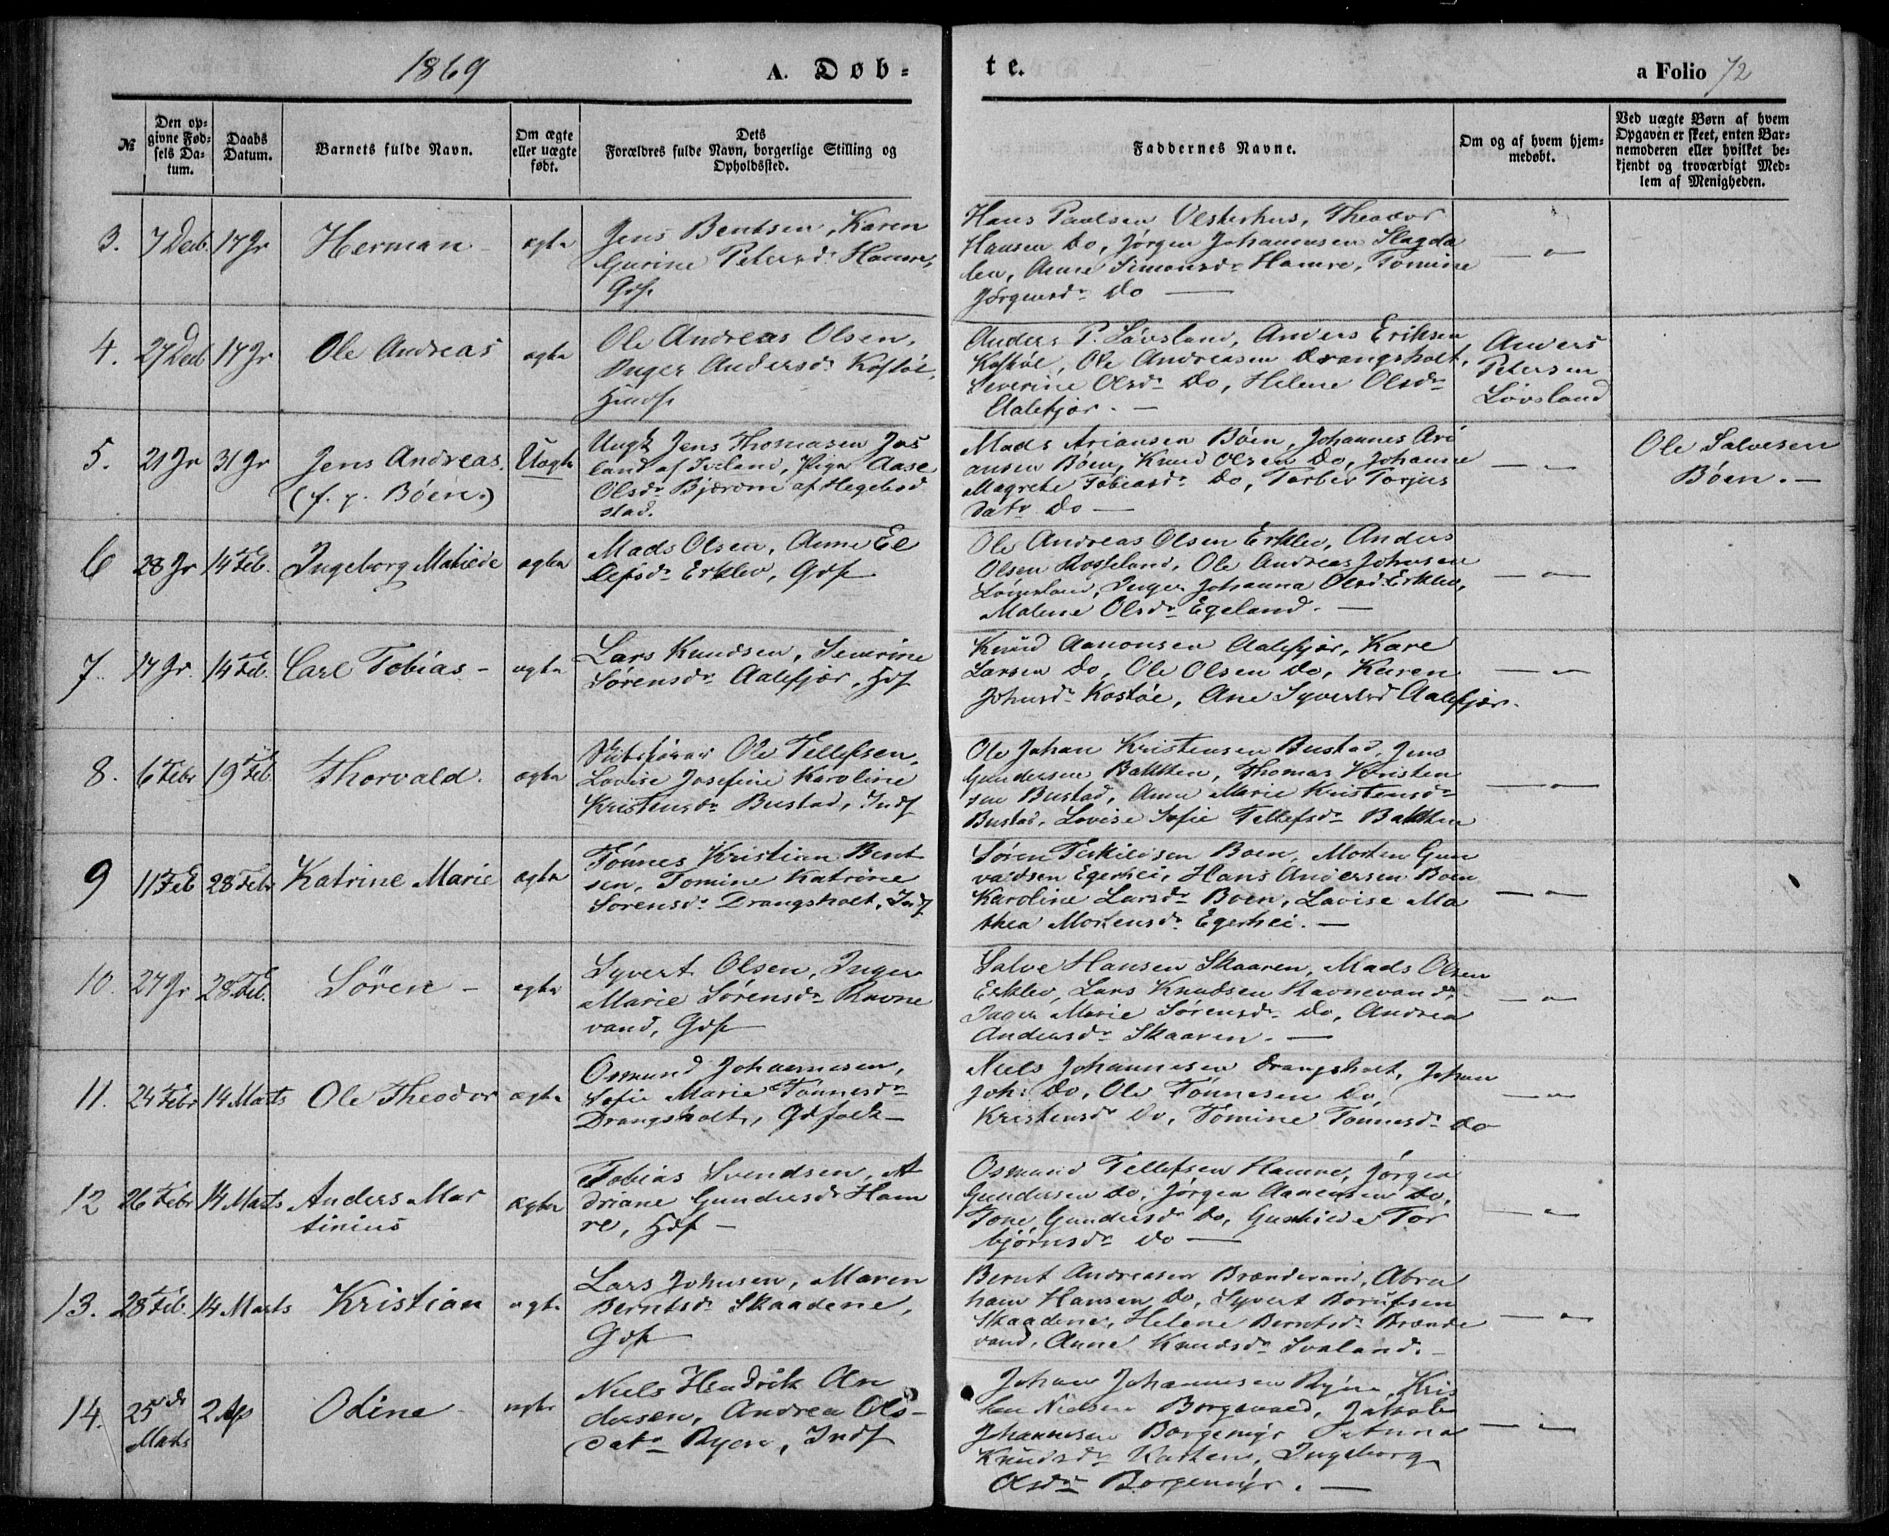 1869
A. Døb=
te.
a Folio 72
№
Den op-
givne Fød-
sels Da-
tum.
Daabs
Datum.
Barnets fulde Navn.
Om ægte
eller uægte
født.
Dets
Forældres fulde Navn, borgerlige Stilling og
Opholdssted.
Faddernes Navne.
Om og af hvem hjem-
medøbt.
Ved uægte Børn af hvem
Opgaven er skeet, enten Bar-
nemoderen eller hvilket be-
kjendt og troværdigt Med-
lem af Menigheden.
3. 7 Decb. 17 Jr Herman - ægte
Jens Bentsen, Karen
Gurine Petersdr Hamre,
Gdf.
Hans Paulsen Vesterhus, Theodor
Hansen Do, Jørgen Johannesen Slagda
len, Anne Simonsdr Hamre, Tomine
Jørgensdr Do —
— " —
4. 27 Decb 17 Jr Ole Andreas ægte
Ole Andreas Olsen,
Inger Andersdr Kostøl,
Hmdf.
Anders P. Løvsland, Anders Eriksen
Kostøl, Ole Andreasen Drangsholt,
Severine Olsdr Do, Helene Olsdr
Aalefjær. —
Anders
Petersen
Løvsland
5. 21 Jr 31 Jr Jens Andreas.
(f. p. Bøen.)
Uægte
Ungk Jens Thomasen Jos
land af Iveland, Pige Aase
Olsdr Bjærom af Hegebod
stad.
Mads Ariansen Bøen, Johannes Ari
ansen Bøen, Knud Olsen Do, Johanne
Magrete Tobiasdr Do, Torbor Torjus
datr Do —
— " —
Ole Salvesen
Bøen. —
6 28 Jr 14 Feb. Ingeborg Matilde ægte
Mads Olsen, Anne El
lefsdr Erklev, Gdf
Ole Andreas Olsen Erklev, Anders
Olsen Rosseland, Ole Andreas Johnsen
Lønsland, Inger Johanna Olsdr Erklev,
Malene Olsdr Egeland. —
— " —
7. 14 Jr. 14 Feb. Carl Tobias - ægte
Lars Knudsen, Severine
Sørensdr Aalefjær, Hdf
Knud Aanonsen Aalefjær, Kare
Larsen Do, Ole Olsen Do, Karen
Johnsdr Kostøl, Ane Syvertsd Aalefjær.
— " —
8. 6 Febr 19 Feb. Thorvald. ægte
Skibsfører Ole Tellefsen,
Lovise Josefine Karoline
Kristensdr Bustad, Indf
Ole Johan Kristensen Bustad, Jens
Gundersen Bakken, Thomas Kristen
sen Bustad, Anne Marie Kristensdr
Bustad, Lovise Sofie Tellefsdr Bakken
— " —
9 11 Feb 28 Febr Katrine Marie ægte
Tønnes Kristian Bent
sen, Tomine Katrine
Sørensdr Drangsholt, Indf
Søren Terkildsen Boen, Morten Gun
valdsen Egerhei, Hans Andersen Boen
Karoline Larsdr Boen, Lovise Ma
thea Mortensdr Egerhei. —
— " —
10. 27 Jr 28 Feb. Søren - ægte
Syvert Olsen, Inger
Marie Sørensdr Ravne
vand, Gdf
Salve Hansen Skaaren, Mads Olsen
Erklev, Lars Knudsen Ravnevand,
Inger Marie Sørensdr Do, Andrea
Andersdr Skaaren. —
— " —
11. 24 Febr 14 Marts Ole Theodor ægte
Osmund Johannesen,
Sofie Marie Tønnesdr
Drangsholt, Gdfolk —
Niels Johannesen Drangsholt, Johan
Joh: Do, Ole Tønnesen Do,
Kristensdr Do, Tomine Tønnesdr Do
— " —
12 26 Febr 14 Marts Anders Mar
tinius
ægte
Tobias Svendsen, A
driane Gundersdr Ham
re, Hdf —
Osmund Tellefsen Hamre, Jørgen
Gundersen Do, Jørgen Aanensen Do,
Tone Gundersdr Do, Gunhilde Tor
bjørnsdr Do —
— " —
13. 28 Feb. 14 Marts Kristian ægte
Lars Johnsen, Maren
Berntsdr Skaadene,
Gdf
Bernt Andreasen Brændevand, Abra
ham Hansen Do, Syvert Borufsen
Skaadene, Helene Berntsdr Brænde
vand, Anne Knudsdr Ivaland. —
— " —
14. 25de
Marts
2 Ap Odine - ægte
Niels Hendrik An
dersen, Andrea Ols-
datr Ryen, Indf
Johan Johannesen Ryen, Kris
ten Nielsen Borgevold, Jakob
Johannesen Borgemyr, Anna
Knudsdr Kostene, Ingeborg
Olsdr Borgemyr. —
— " —